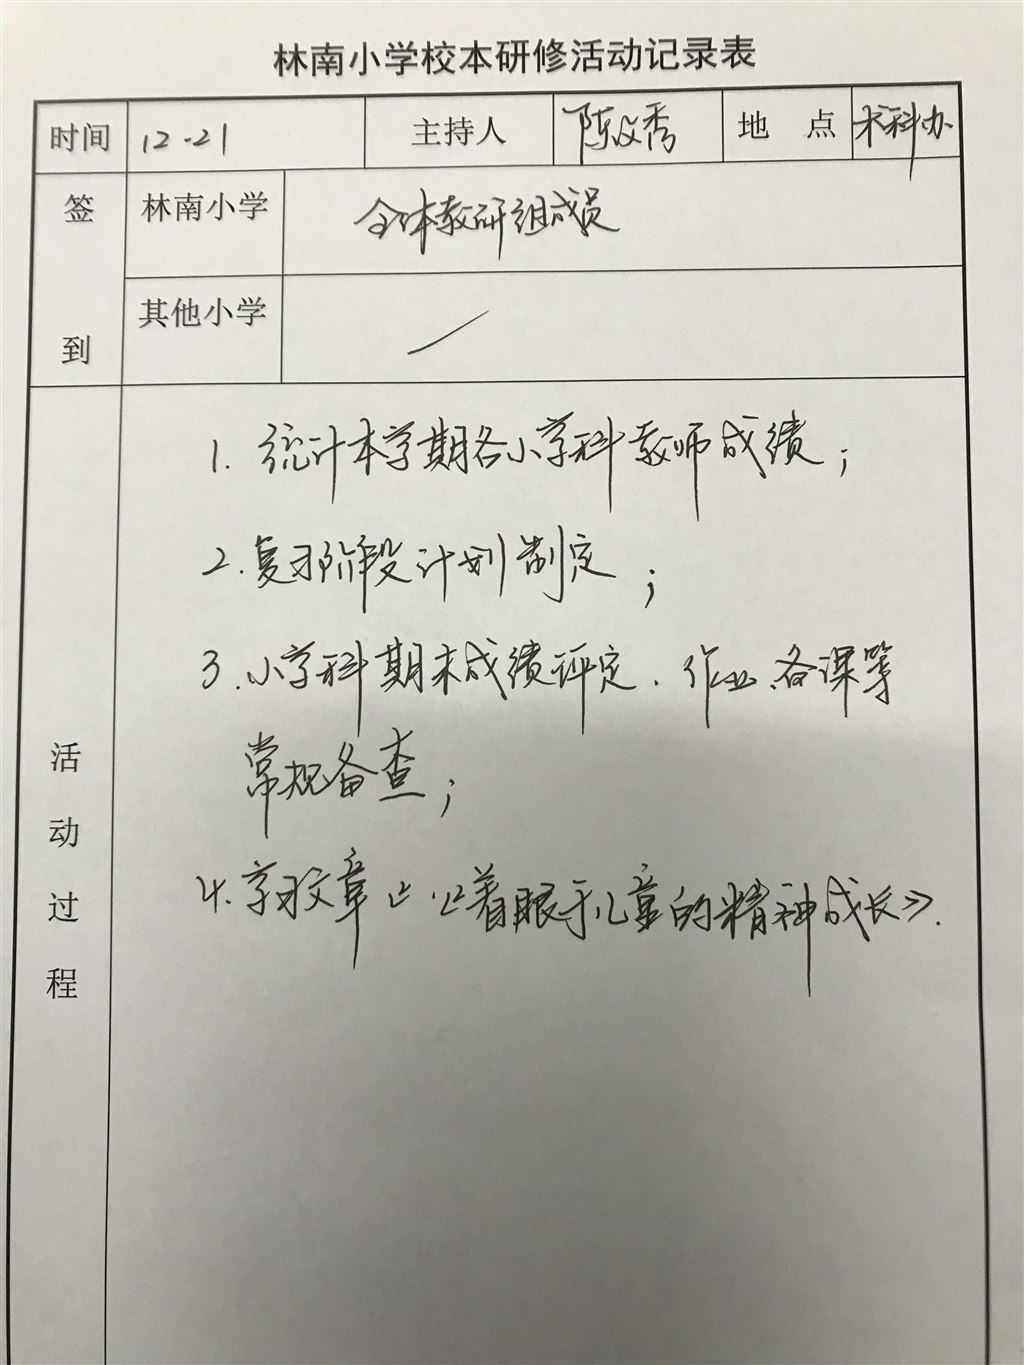 林南小学校本研修活动记录表
时间 12-21 主持人 陈文秀 地 点 术科办
签到 林南小学 全体教研组成员
其他小学 /
活动过程
1. 统计本学期各小学科教师成绩；
2. 复习阶段计划制定；
3. 小学科期末成绩评定、作业、备课等
常规备查；
4. 学习文章《着眼于儿童的精神成长》.